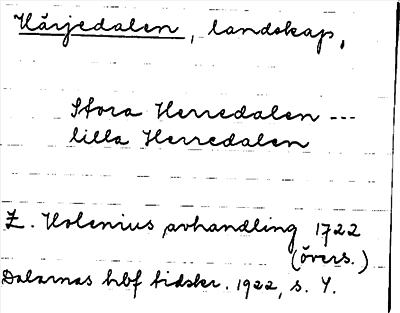 Härjedalen, landskap,
Stora Herredalen ---
lilla Herredalen
Z. Holenius avhandling 1722
(övers.)
Dalarnas hbf tidskr. 1922, s. 4.